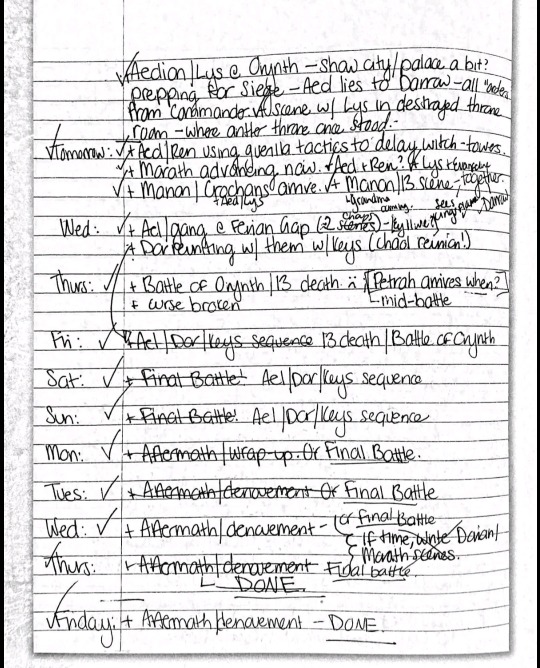 ✓Aedion/Lys @ Orynth - show city/palace a bit?
prepping for Siege - Aed lies to Darrow - all
from Commander. + scene w/ Lys in destroyed throne
room - where antler throne once stood.
Tomorrow: ✓+ Aed/Ren using guerilla tactics to delay witch-towers.
✓+ Morath advancing now. + Aed + Ren? + Lys + Evangeline
✓+ Manon/Crochans arrive. + Manon/13 scene - together.
+ Aed/Lys
↳grandma coming.
sees
Darrow
Wed: ✓+ Ael/gang @ Ferian Gap (2 scenes) - Kyllwe
chaps
+ Dor reuniting w/ them w/ keys (chaol reunion!)
Thurs: ✓+ Battle of Orynth/13 death :( [Petrah arrives when?]
+ curse broken └ mid-battle
Fri: ✓+ Ael/Dor/keys sequence 13 death/Battle of Orynth
Sat: ✓+ Final Battle! Ael/Dor/keys sequence
Sun: ✓+ Final Battle! Ael/Dor/keys sequence
Mon: ✓+ Aftermath/wrap-up. Or Final Battle.
Tues: ✓+ Aftermath/denouement Or Final Battle
Wed: ✓+ Aftermath/denouement - or Final Battle
{ If time, write Dorian/
Morath scenes.
Thurs: + Aftermath/denouement Final battle.
└ DONE.
✓Friday: + Aftermath/denouement - DONE.